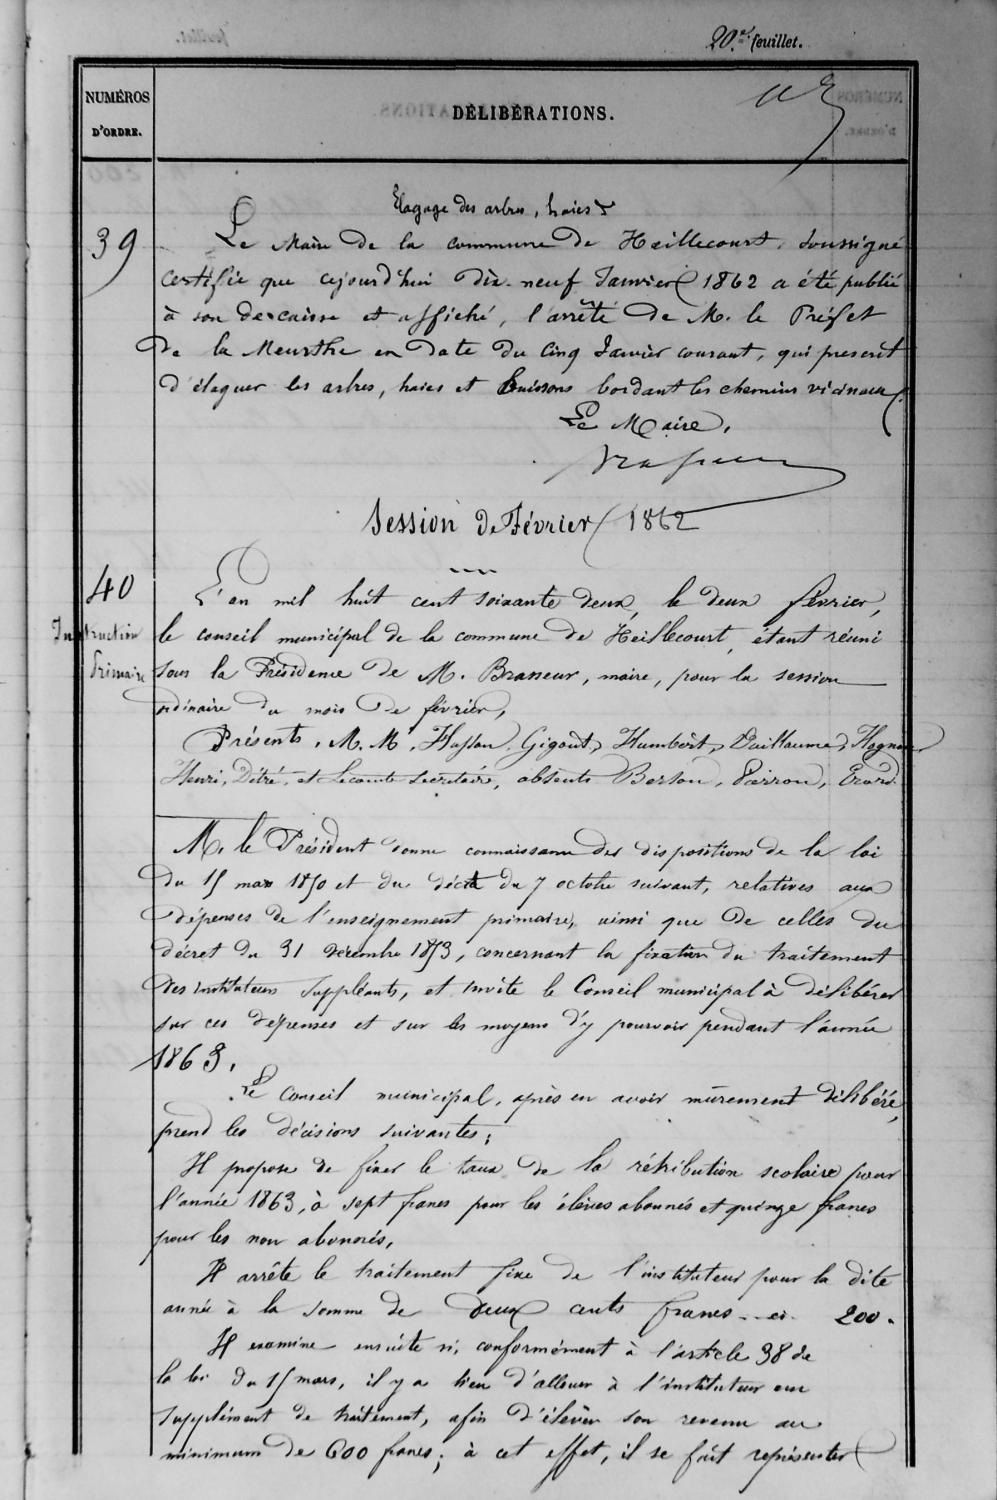 20.e feuillet.
NUMÉROS
D'ORDRE.
DÉLIBÉRATIONS.
39
Elagage des arbres, haies &
Le Maire de la commune de Heillecourt, soussigné
certifie que cejourd'hui dix-neuf Janvier 1862 a été publié
à son de caisse et affiché, l'arrêté de M. le Préfet
de la Meurthe en date du cinq Janvier courant, qui prescrit
d'élaguer les arbres, haies et buissons bordant les chemins vicinaux.
Le Maire,
Session de Février 1862
40
Instruction
Primaire
L'an mil huit cent soixante deux, le deux février,
le conseil municipal de la commune de Heillecourt, étant réuni
sous la Présidence de M. Brasseur, maire, pour la session
ordinaire du mois de février,
Présents, M. M. Gigout, Humbert, Vuillaume,
Henri, Détré, et Lecomte secrétaire, absents Berson, Pierron, Erard
M. le Président donne connaissance des dispositions de la loi
du 15 mars 1850 et du décret du 7 octobre suivant, relatives aux
dépenses de l'enseignement primaire, ainsi que de celles du
décret du 31 décembre 1853, concernant la fixation du traitement
des instituteurs suppléants, et invite le Conseil municipal à délibérer
sur ces dépenses et sur les moyens d'y pourvoir pendant l'année
1863.
Le Conseil municipal, après en avoir mûrement délibéré,
prend les décisions suivantes;
Il propose de fixer le taux de la rétribution scolaire pour
l'année 1863, à sept francs pour les élèves abonnés et quinze francs
pour les non abonnés,
Il arrête le traitement fixe de l'instituteur pour la dite
année à la somme de deux cents francs .. ci. 200.
Il examine ensuite si, conformément à l'article 38 de
la loi du 15 mars, il y a lieu d'allouer à l'instituteur un
supplément de traitement, afin d'élever son revenu au
minimum de 600 francs; à cet effet, il se fait représenter